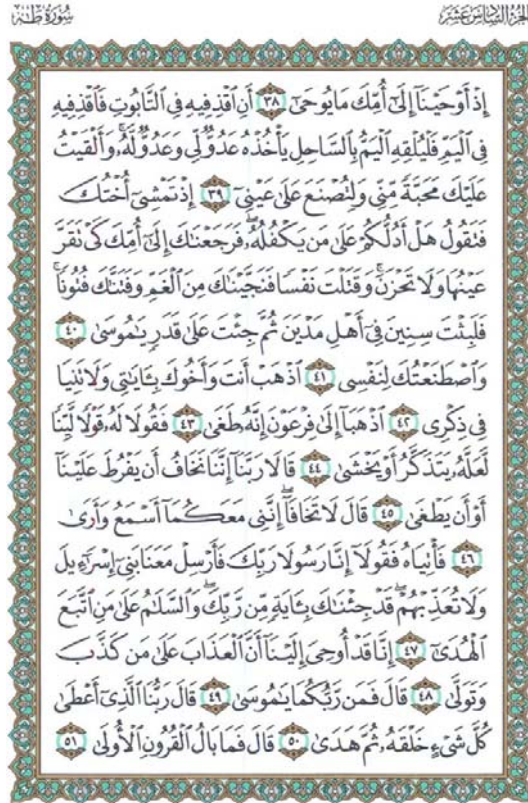 الجزء السادس عشر
سورة طه
إِذْ أَوْحَيْنَآ إِلَىٰٓ أُمِّكَ مَا يُوحَىٰٓ ٣٨ أَنِ ٱقْذِفِيهِ فِى ٱلتَّابُوتِ فَٱقْذِفِيهِ
فِى ٱلْيَمِّ فَلْيُلْقِهِ ٱلْيَمُّ بِٱلسَّاحِلِ يَأْخُذْهُ عَدُوٌّ لِّى وَعَدُوٌّ لَّهُۥ ۚ وَأَلْقَيْتُ
عَلَيْكَ مَحَبَّةً مِّنِّى وَلِتُصْنَعَ عَلَىٰ عَيْنِىٓ ٣٩ إِذْ تَمْشِىٓ أُخْتُكَ
فَتَقُولُ هَلْ أَدُلُّكُمْ عَلَىٰ مَن يَكْفُلُهُۥ ۖ فَرَجَعْنَٰكَ إِلَىٰٓ أُمِّكَ كَىْ تَقَرَّ
عَيْنُهَا وَلَا تَحْزَنَ ۚ وَقَتَلْتَ نَفْسًا فَنَجَّيْنَٰكَ مِنَ ٱلْغَمِّ وَفَتَنَّٰكَ فُتُونًا ۚ
فَلَبِثْتَ سِنِينَ فِىٓ أَهْلِ مَدْيَنَ ثُمَّ جِئْتَ عَلَىٰ قَدَرٍ يَٰمُوسَىٰ ٤٠
وَٱصْطَنَعْتُكَ لِنَفْسِى ٤١ ٱذْهَبْ أَنتَ وَأَخُوكَ بِـَٔايَٰتِى وَلَا تَنِيَا
فِى ذِكْرِى ٤٢ ٱذْهَبَآ إِلَىٰ فِرْعَوْنَ إِنَّهُۥ طَغَىٰ ٤٣ فَقُولَا لَهُۥ قَوْلًا لَّيِّنًا
لَّعَلَّهُۥ يَتَذَكَّرُ أَوْ يَخْشَىٰ ٤٤ قَالَا رَبَّنَآ إِنَّنَا نَخَافُ أَن يَفْرُطَ عَلَيْنَآ
أَوْ أَن يَطْغَىٰ ٤٥ قَالَ لَا تَخَافَآ ۖ إِنَّنِى مَعَكُمَآ أَسْمَعُ وَأَرَىٰ
٤٦ فَأْتِيَاهُ فَقُولَآ إِنَّا رَسُولَا رَبِّكَ فَأَرْسِلْ مَعَنَا بَنِىٓ إِسْرَٰٓءِيلَ
وَلَا تُعَذِّبْهُمْ ۖ قَدْ جِئْنَٰكَ بِـَٔايَةٍ مِّن رَّبِّكَ ۖ وَٱلسَّلَٰمُ عَلَىٰ مَنِ ٱتَّبَعَ
ٱلْهُدَىٰٓ ٤٧ إِنَّا قَدْ أُوحِىَ إِلَيْنَآ أَنَّ ٱلْعَذَابَ عَلَىٰ مَن كَذَّبَ
وَتَوَلَّىٰ ٤٨ قَالَ فَمَن رَّبُّكُمَا يَٰمُوسَىٰ ٤٩ قَالَ رَبُّنَا ٱلَّذِىٓ أَعْطَىٰ
كُلَّ شَىْءٍ خَلْقَهُۥ ثُمَّ هَدَىٰ ٥٠ قَالَ فَمَا بَالُ ٱلْقُرُونِ ٱلْأُولَىٰ ٥١